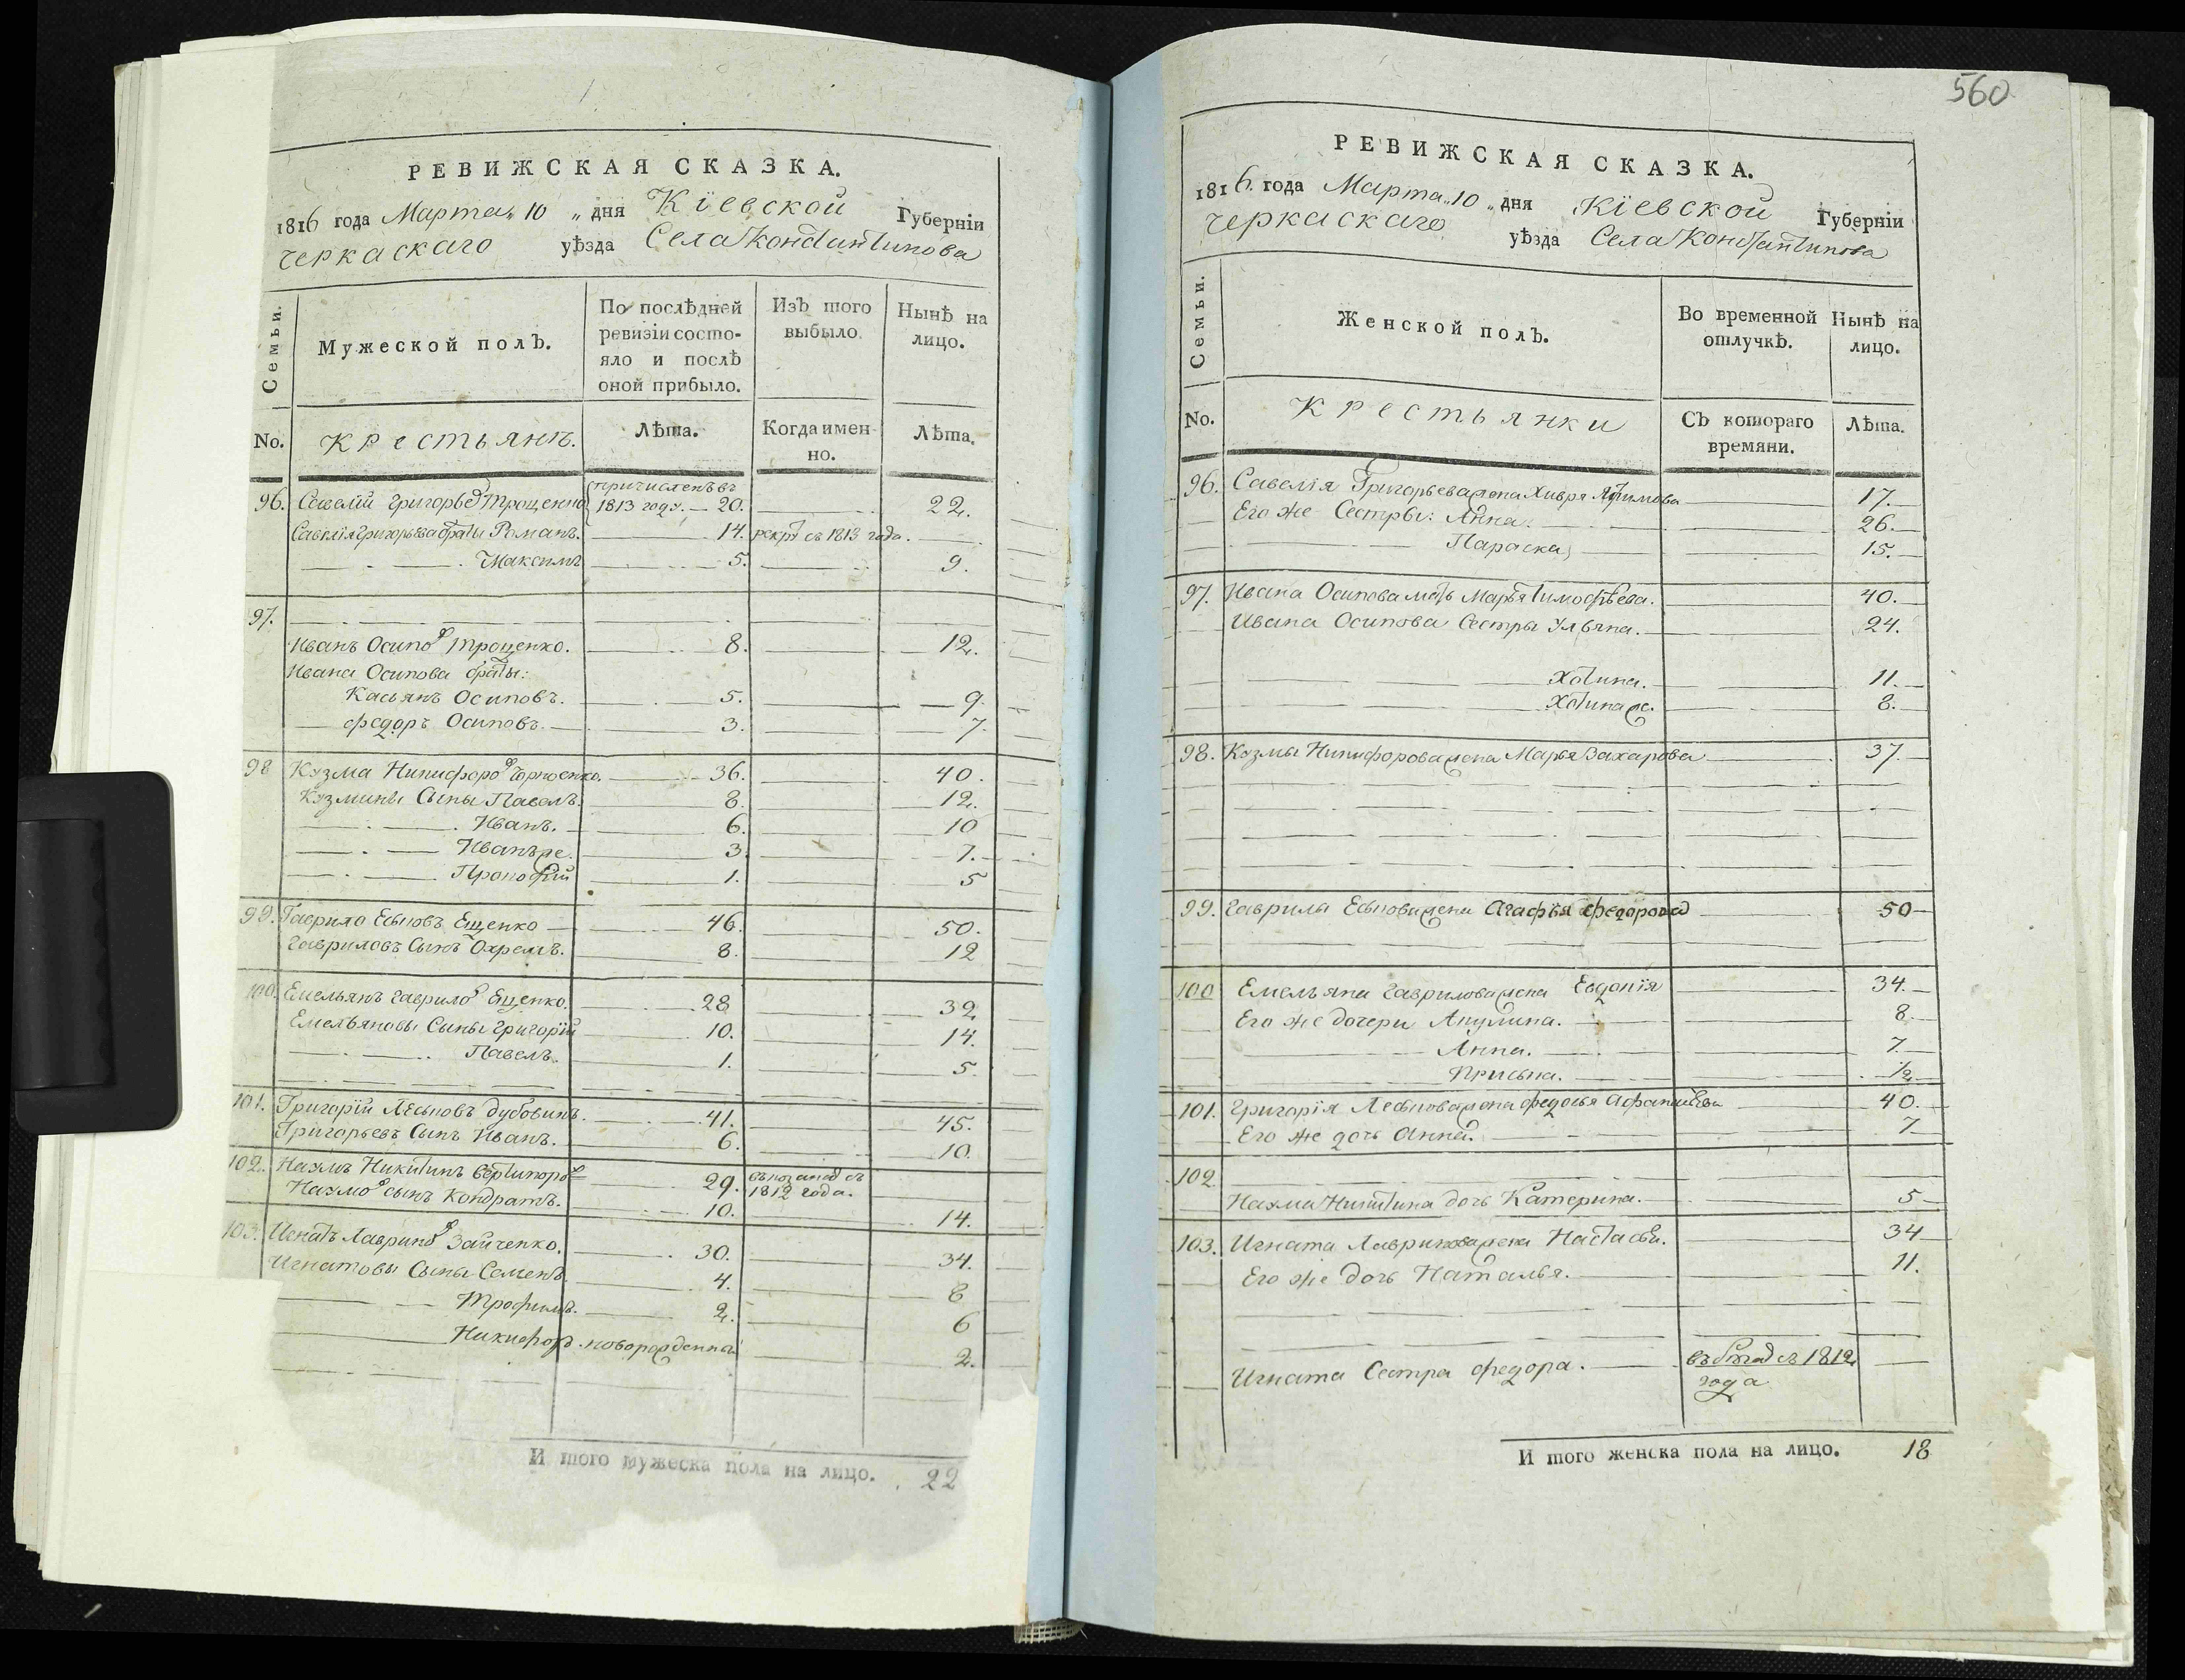 РЕВИЖСКАЯ СКАЗКА.
1816 года Марта 10 „ дня Кіевской Губерніи
Черкаскаго уѣзда Села Константинова
Семьи.
Мужеской полъ.
По послѣдней ревизіи состо-
яло и послѣ
оной прибыло.
Изъ того
выбыло.
Нынѣ на
лицо.
No.
Крестьянъ.
Лѣта.
Когда имен-
но.
Лѣта.
96. Савелій Григорьев Троценко причисленъ въ 1813 году. — 20. 22.
Савелія Григорьева браты Романъ. 14. рекрут съ 1813 года.
Максимъ 5. 9.
97.
Иванъ Осипов Троценко. 8. 12.
Ивана Осипова браты:
Касьянъ Осиповъ. 5. 9.
Федоръ Осиповъ. 3. 7.
98 Кузма Никифоров 36. 40.
Кузмины Сыны Павелъ. 8. 12.
Иванъ. 6. 10
Иванъ же. 3. 7.
Прокофій 1. 5
99. Гаврило Есиповъ Ещенко 46. 50.
Гавриловъ Сынъ Охремъ. 8. 12
100. Емельянъ Гаврилов Ещенко. 28 32
Емельяновы Сыны Григорій 10. 14.
Павелъ. 1. 5.
101. Григорій Лесковъ Дубовикъ. 41. 45.
Григорьевъ Сынъ Иванъ. 6. 10.
102. Наумъ Никитинъ 29. 1812 года.
Наумов сынъ Кондратъ. 10. 14.
103. Игнатъ Лавринов Зайченко. 30. 34.
Игнатовы Сыны Семенъ. 4. 8
Трофимъ. 2. 6
Никифоръ. новорожденный 2.
И того мужеска пола на лицо. 22
560
РЕВИЖСКАЯ СКАЗКА.
1816 года Марта 10 „ дня Кіевской Губерніи
Черкаскаго уѣзда Села Константинова
Семьи.
Женской полъ.
Во временной
отлучкѣ.
Нынѣ на
лицо.
No.
Крестьянки
Съ котораго
времяни.
Лѣта.
96. Савелія Григорьева жена Хивря Яфимова 17.
Его же Сестры: Анна. 26.
Параска 15.
97. Ивана Осипова мать Марья Тимофѣева. 40.
Ивана Осипова Сестры Ульяна. 24.
Хотина. 11.
Хотина же. 8.
98. Кузмы Никифорова жена Марья Захарова 37.
99. Гаврилы Есипова жена Агафія Федорова 50
100 Емельяна Гаврилова жена Евдокія 34.
Его же дочери Акулина. 8.
Анна. 7.
Приська. 1/2
101. Григорія Лескова жена Федосья Афанасіева 40.
Его же дочь Анна. 7
102
Наума Никитина дочь Катерина. 5
103. Игната Лавринова жена Настасья. 34
Его же дочь Наталья. 11.
Игната Сестра Федора. съ 1812 года
И того женска пола на лицо. 18